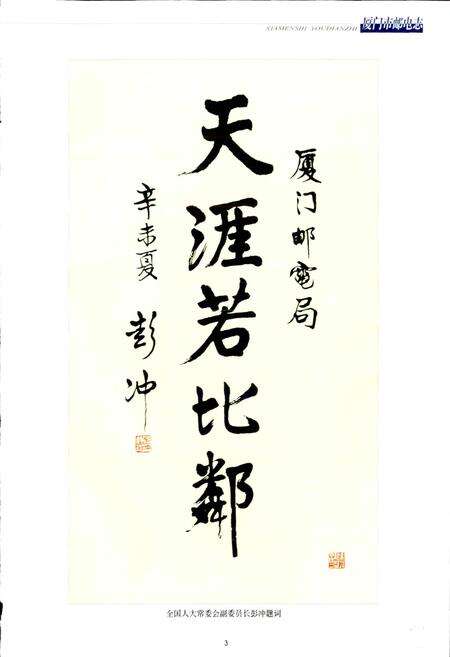 XIAMENSHI YOUDIANZHI 厦门市邮电志
厦门邮電局
天涯若比鄰
辛未夏
彭冲
全国人大常委会副委员长彭冲题词
3